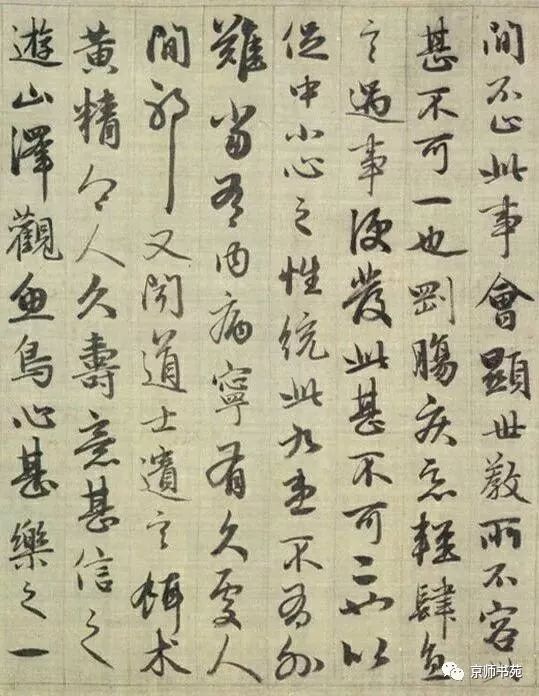 間不止此事會顯世教所不容此
甚不可一也剛腸疾惡輕肆直
言遇事便發此甚不可二也以
促中小心之性統此九患不有外
難當有內病寧有久處人
間邪又聞道士遺言餌术
黃精令人久壽意甚信之
遊山澤觀魚鳥心甚樂之一
京师书苑